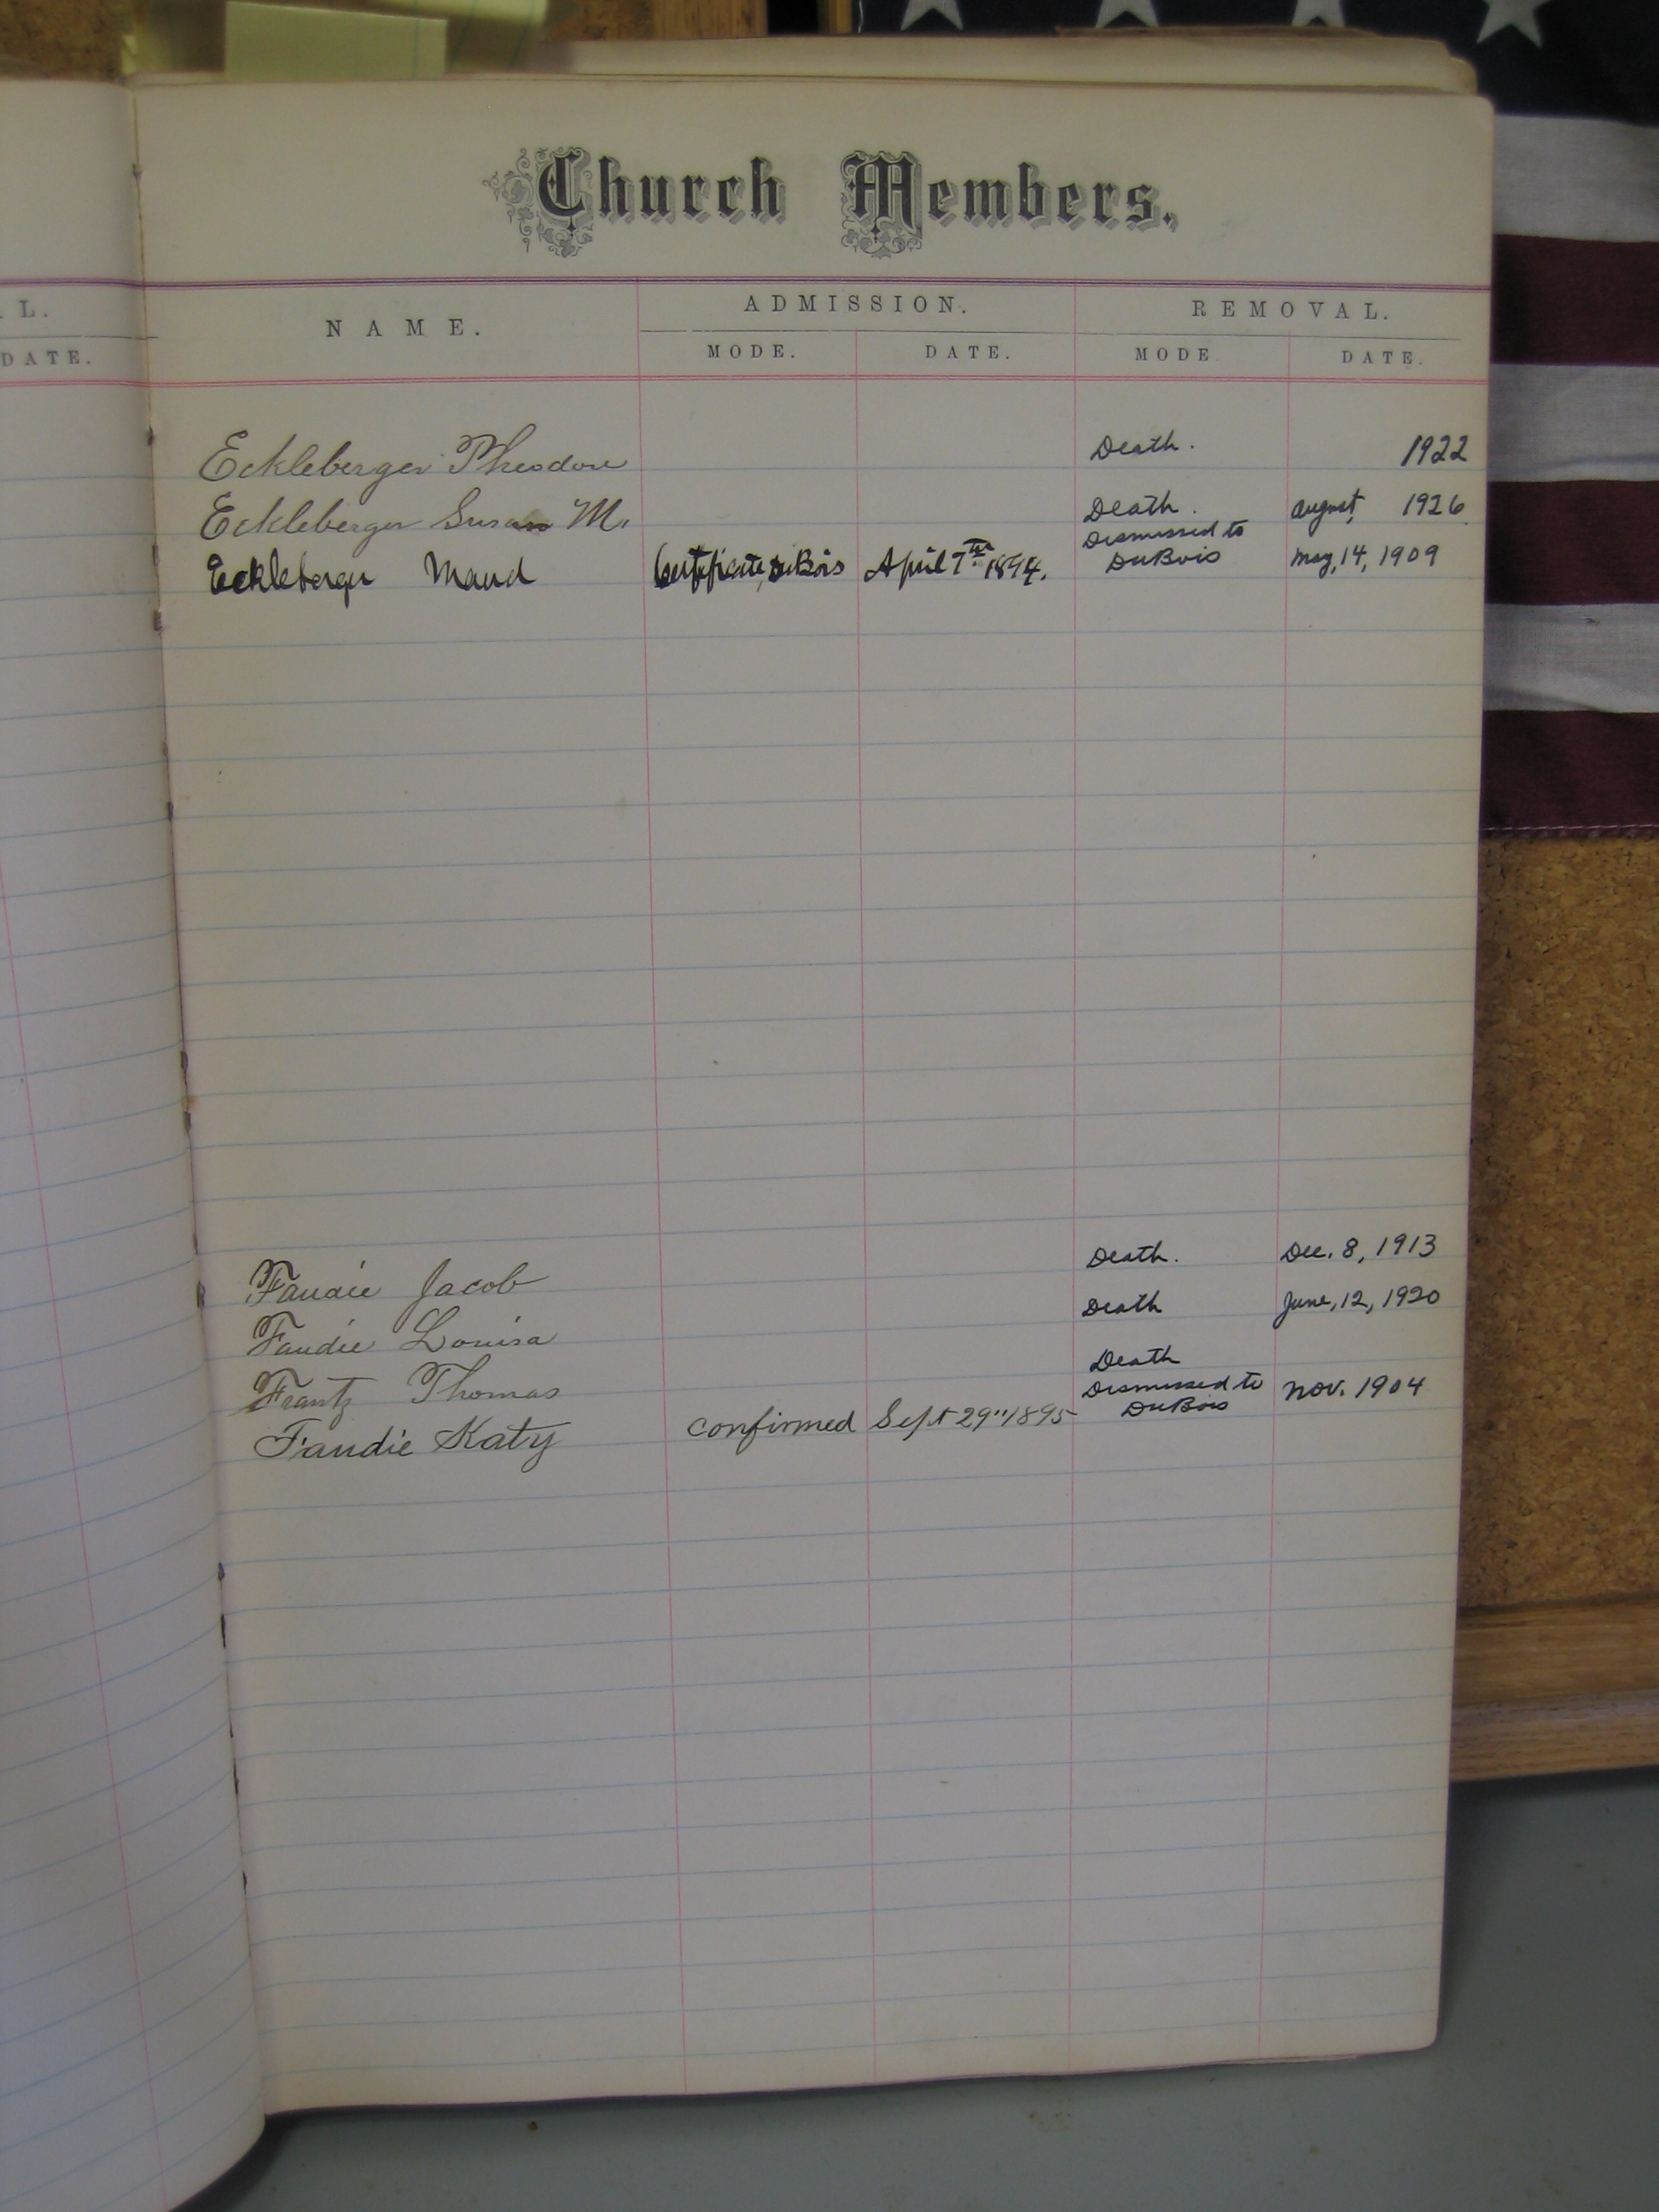 Church Members.
L.
DATE.
NAME.
ADMISSION.
REMOVAL.
MODE.
DATE.
MODE
DATE.
Eckleberger Theodore
Death.
1922
Eckleberger Susan M.
Death.
August, 1926
Eckleberger Maud
Certificate, DuBois
April 7th 1894.
Dismissed to
DuBois
May, 14, 1909
Faudie Jacob
Death.
Dec. 8, 1913
Faudie Louisa
Death
June, 12, 1920
Frantz Thomas
Death
Faudie Katy
confirmed
Sept 29" 1895
Dismissed to
DuBois
Nov. 1904